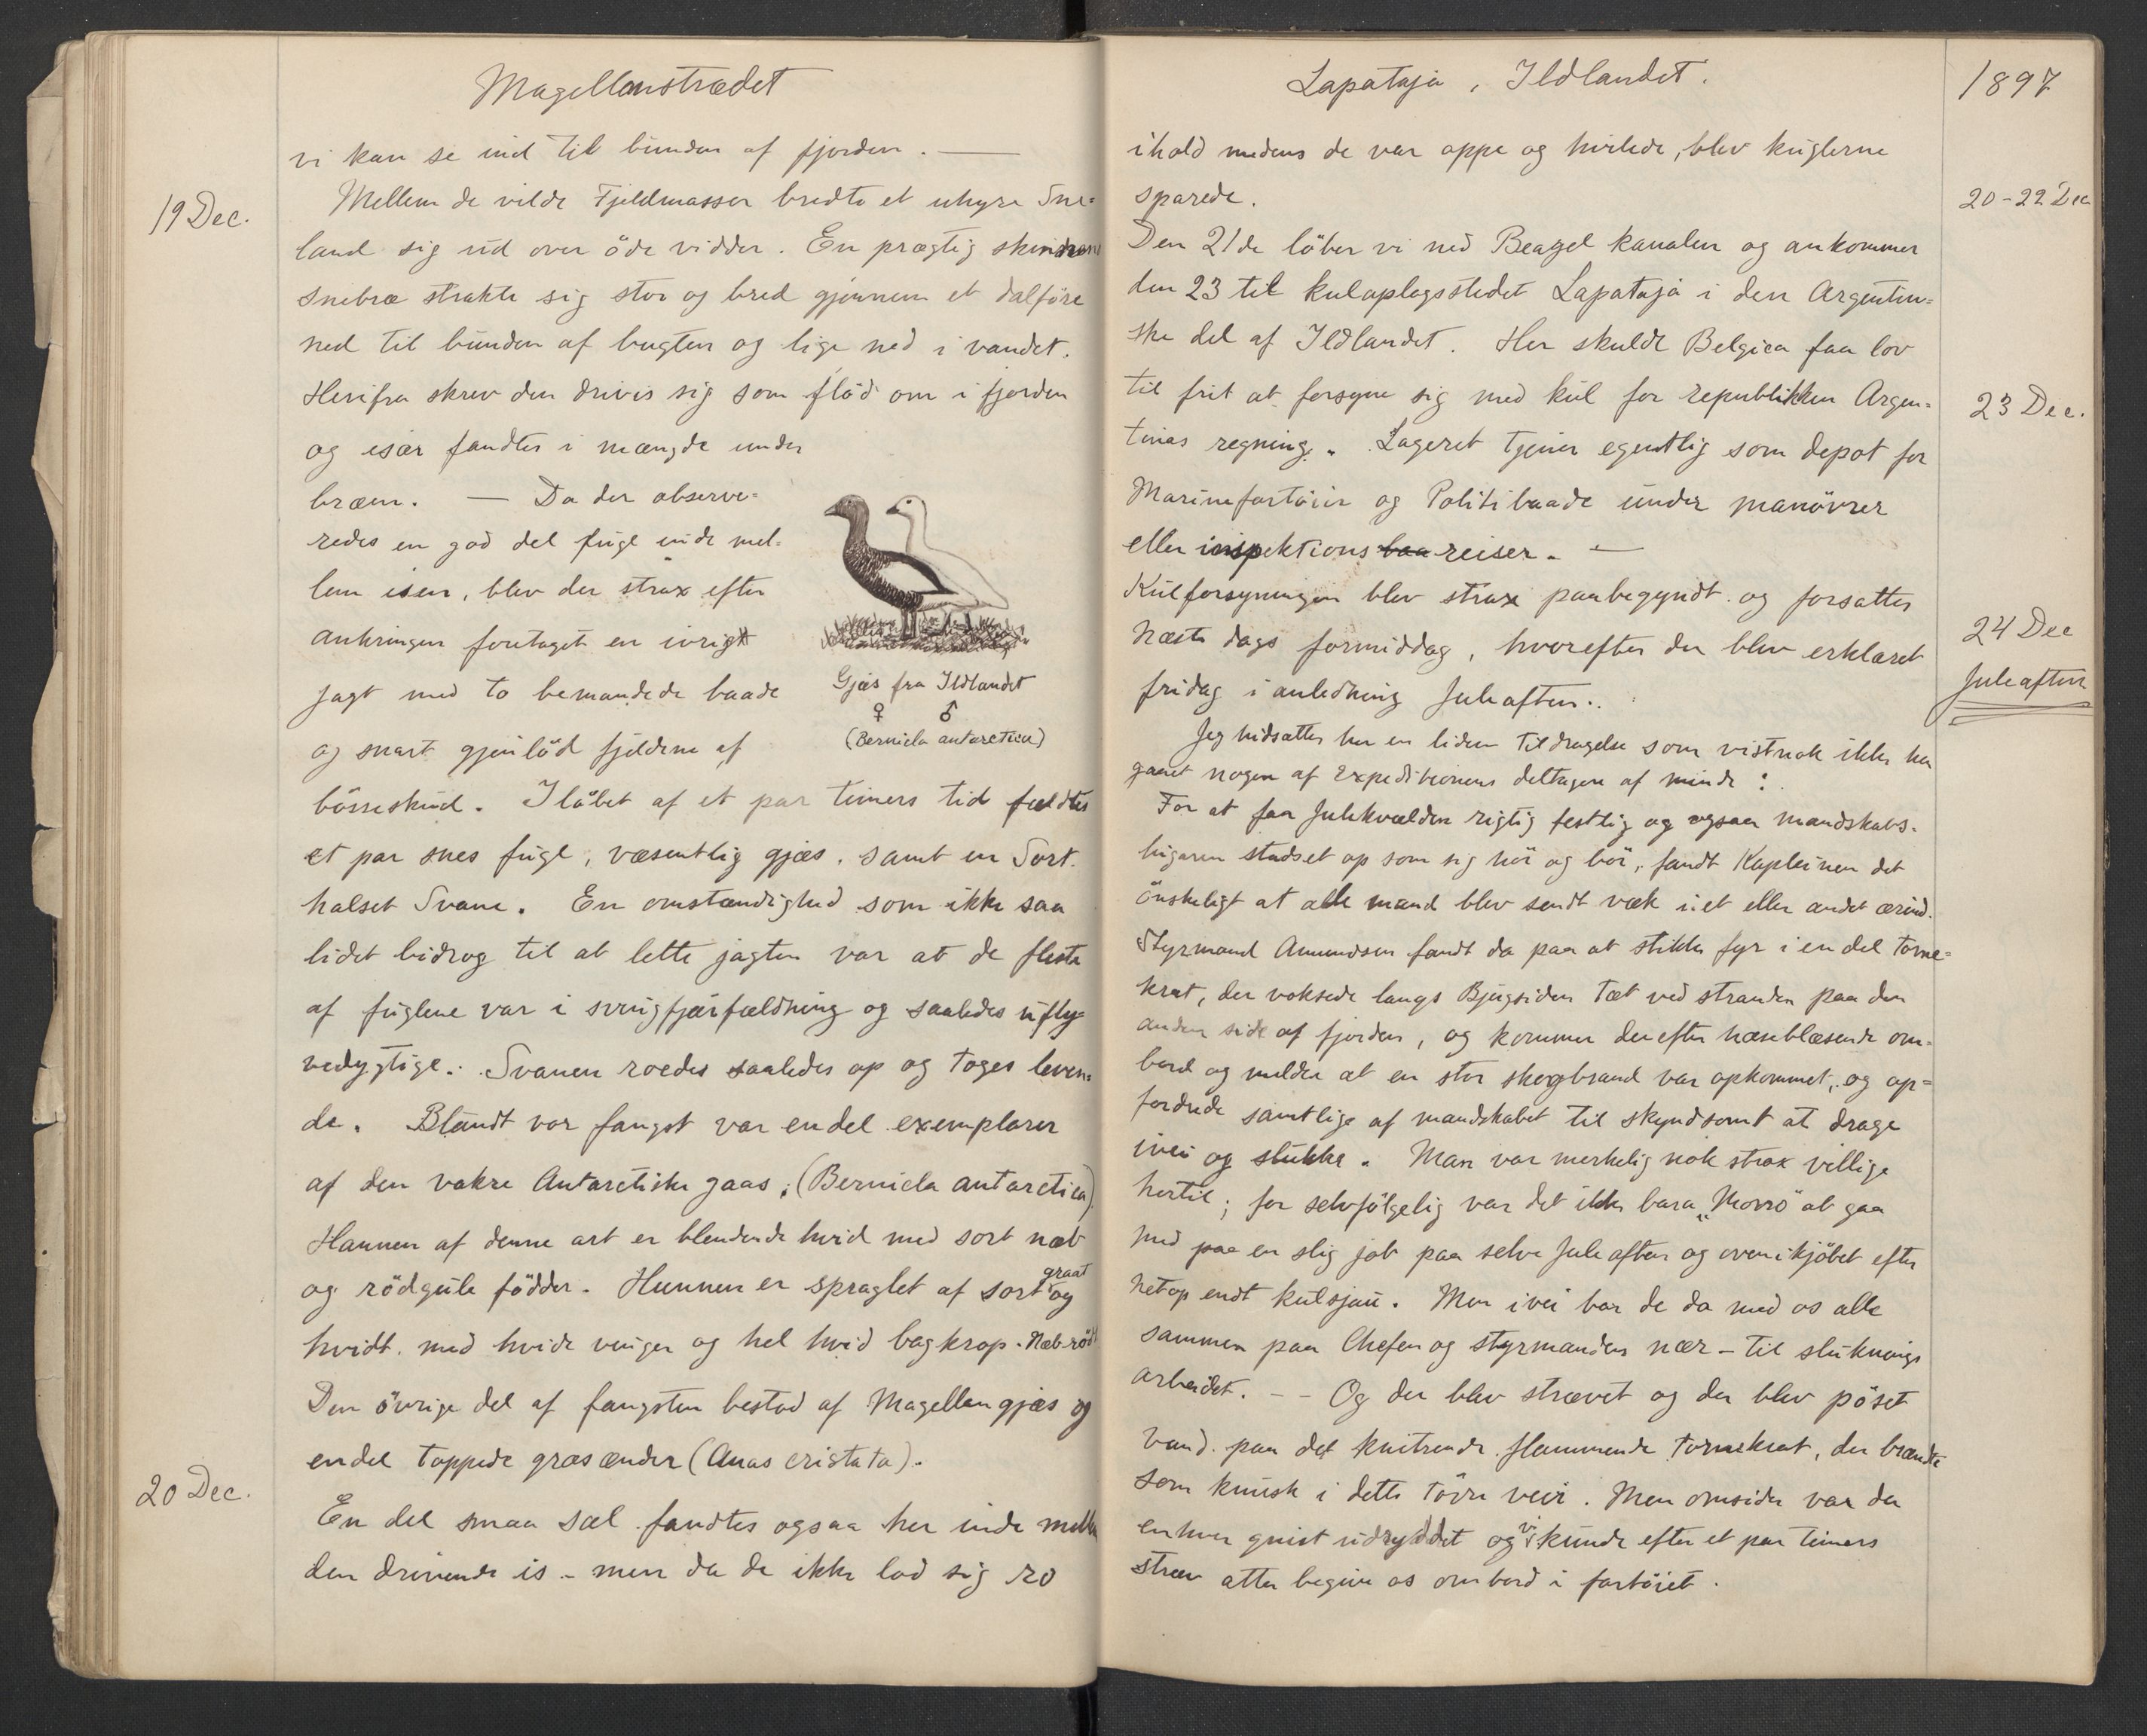 Magellanstrædet
vi kan se ind til bunden af fjorden. —
19 Dec.
Mellem de vilde Fjeldmasser bredte et uhyre Sne=
land sig ud over öde vidder. En prægtig skinnende
Snebræ strakte sig stor og bred gjennem et dalföre
ned til bunden af bugten og lige ned i vandet.
Herifra skrev den drivis sig som flöd om i fjorden
og især fandtes i mængde under
bræen. — Da der observe=
redes en god del fugl inde mel-
lem isen, blev der strax efter
ankringen foretaget en ivrig
jagt med to bemandede baade
Gjæs fra Ildlandet
♀ ♂
(Bernicla antarctica)
og snart gjenlöd fjeldene af
bösseskud. I löbet af et par timers tid fældtes
et par snes fugl, væsentlig gjæs, samt en Sort-
halset Svane. En omstændighed som ikke saa
lidet bidrog til at lette jagten var at de fleste
af fuglene var i svingfjærfældning og saaledes ufly=
vedygtige. Svanen roedes saaledes op og toges leven=
de. Blandt vor fangst var endel exemplarer
af den vakre Antarctiske gaas, (Bernicla antarctica)
Hannen af denne art er blendende hvid med sort næb
og rödgule födder. Hunnen er spraglet af sort graat og
hvidt med hvide vinger og hel hvid bagkrop. Næb rödt
Den övrige del af fangsten bestod af Magellangjæs og
endel toppede græsænder (Anas cristata).
20 Dec.
En del smaa sæl fandtes ogsaa her inde mellem
den drivende is - men da de ikke lod sig ro
Lapataja, Ildlandet.
1897
ihold medens de var oppe og hvilede, blev kuglerne
sparede.
20-22 Dec
Den 21de löber vi ned Beagel kanalen og ankommer
den 23 til kuloplagsstedet Lapataja i den Argentin=
ske del af Ildlandet. Her skulde Belgica faa lov
til frit at forsyne sig med kul for republikken Argen=
23 Dec.
tinas regning. Lageret tjener egentlig som depot for
Marinefartöier og Politibaade under manövrer
eller inspektions baa reiser. —
Kulforsyningen blev strax paabegyndt og forsattes
næste dags formiddag, hvorefter der blev erklæret
24 Dec
Juleaften
fridag i anledning Juleaften.
Jeg nidsætter her en liden tildragelse som vistnok ikke har
gaaet nogen af Expeditionens deltagere af minde:
For at faa Julekvælden rigtig festlig og ogsaa mandskabs-
lugaren stadset op som sig hör og bör, fandt Kapteinen det
önskeligt at alle mand blev sendt væk i et eller andet ærind.
Styrmand Amundsen fandt da paa at stikke fyr i en del torne=
krat, der voksede langs Bjergsiden tæt ved stranden paa den
anden side af fjorden, og kommer derefter næseblæsende om-
bord og melder at en stor skogbrand var opkommet, og op=
fordrede samtlige af mandskabet til skyndsomt at drage
ivei og slukke. Man var merkelig nok strax villige
hertil; for selvfölgelig var det ikke bara "Morro" at gaa
med paa en slig job paa selve Juleaften og ovenikjöbet efter
netop endt kulsjau. Men ivei bar de da med os alle
sammen paa Chefen og styrmanden nær - til sluknings
arbeidet. -- Og der blev strævet og der blev pöset
vand paa det knitrende flammende tornekrat, der brændte
som knusk i dette törre veir. Men omsider var da
enhver gnist udryddet og vi kunde efter et par timers
stræv atter begive os ombord i fartöiet.